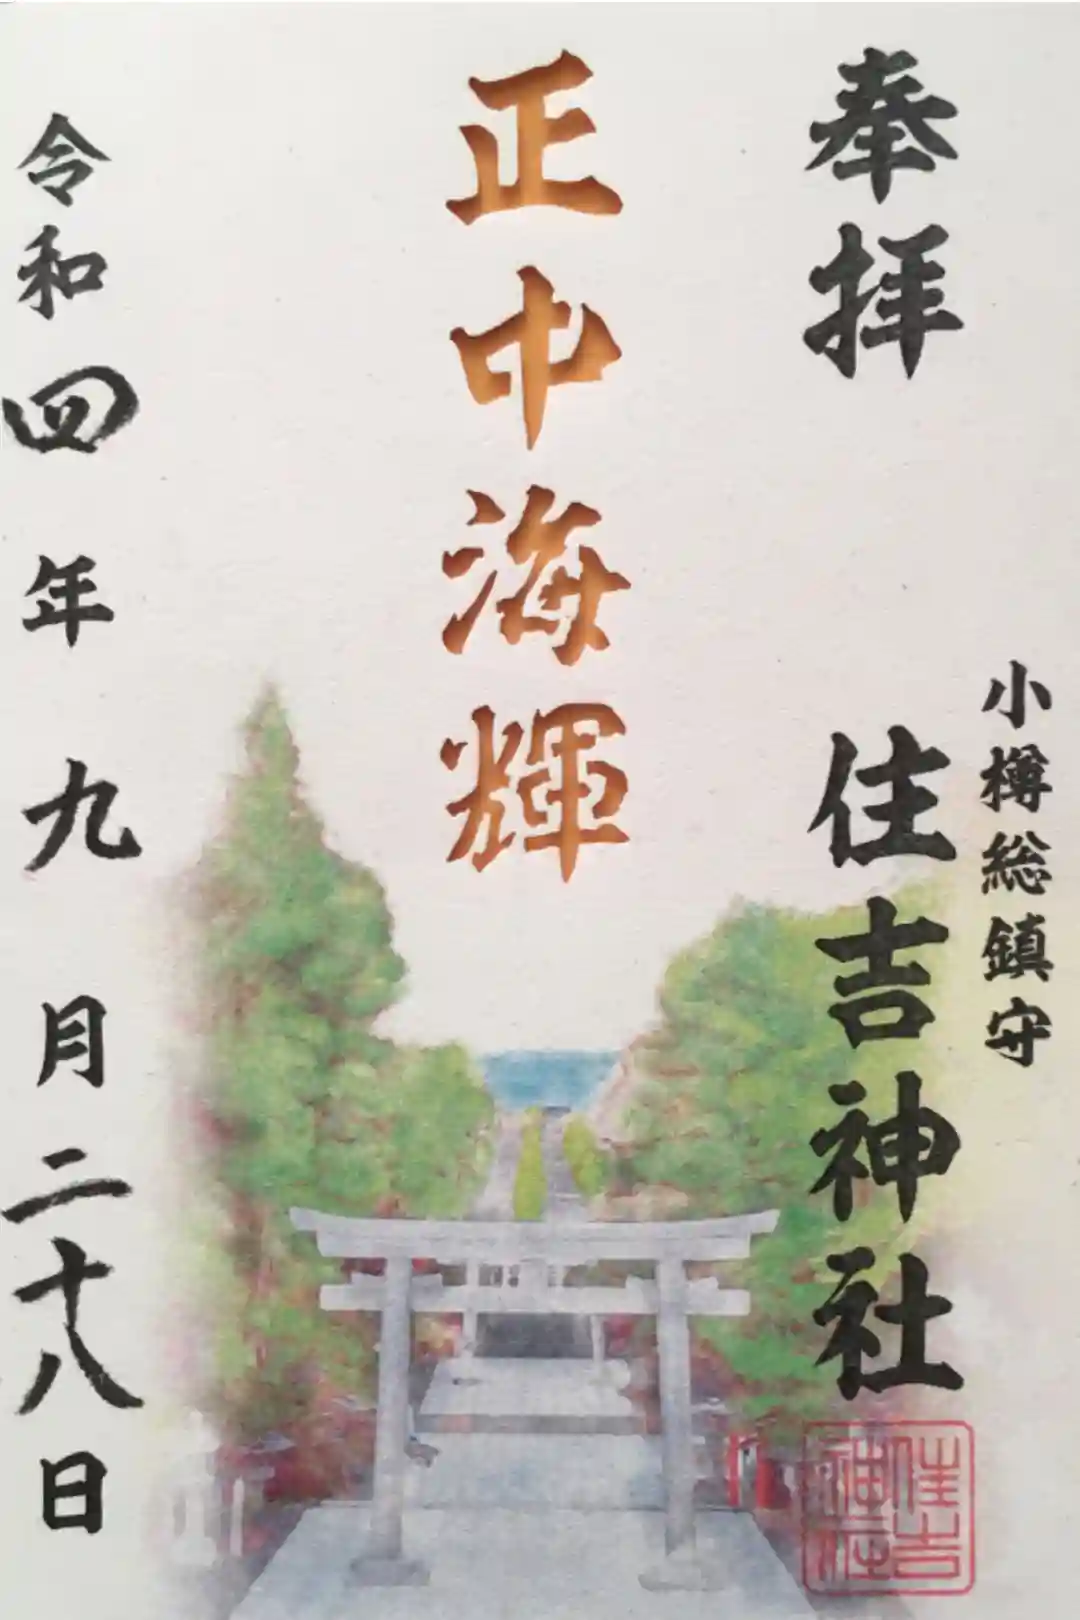 奉拝
小樽総鎮守
住吉神社
住吉
神社
正中海輝
令和四年九月二十八日